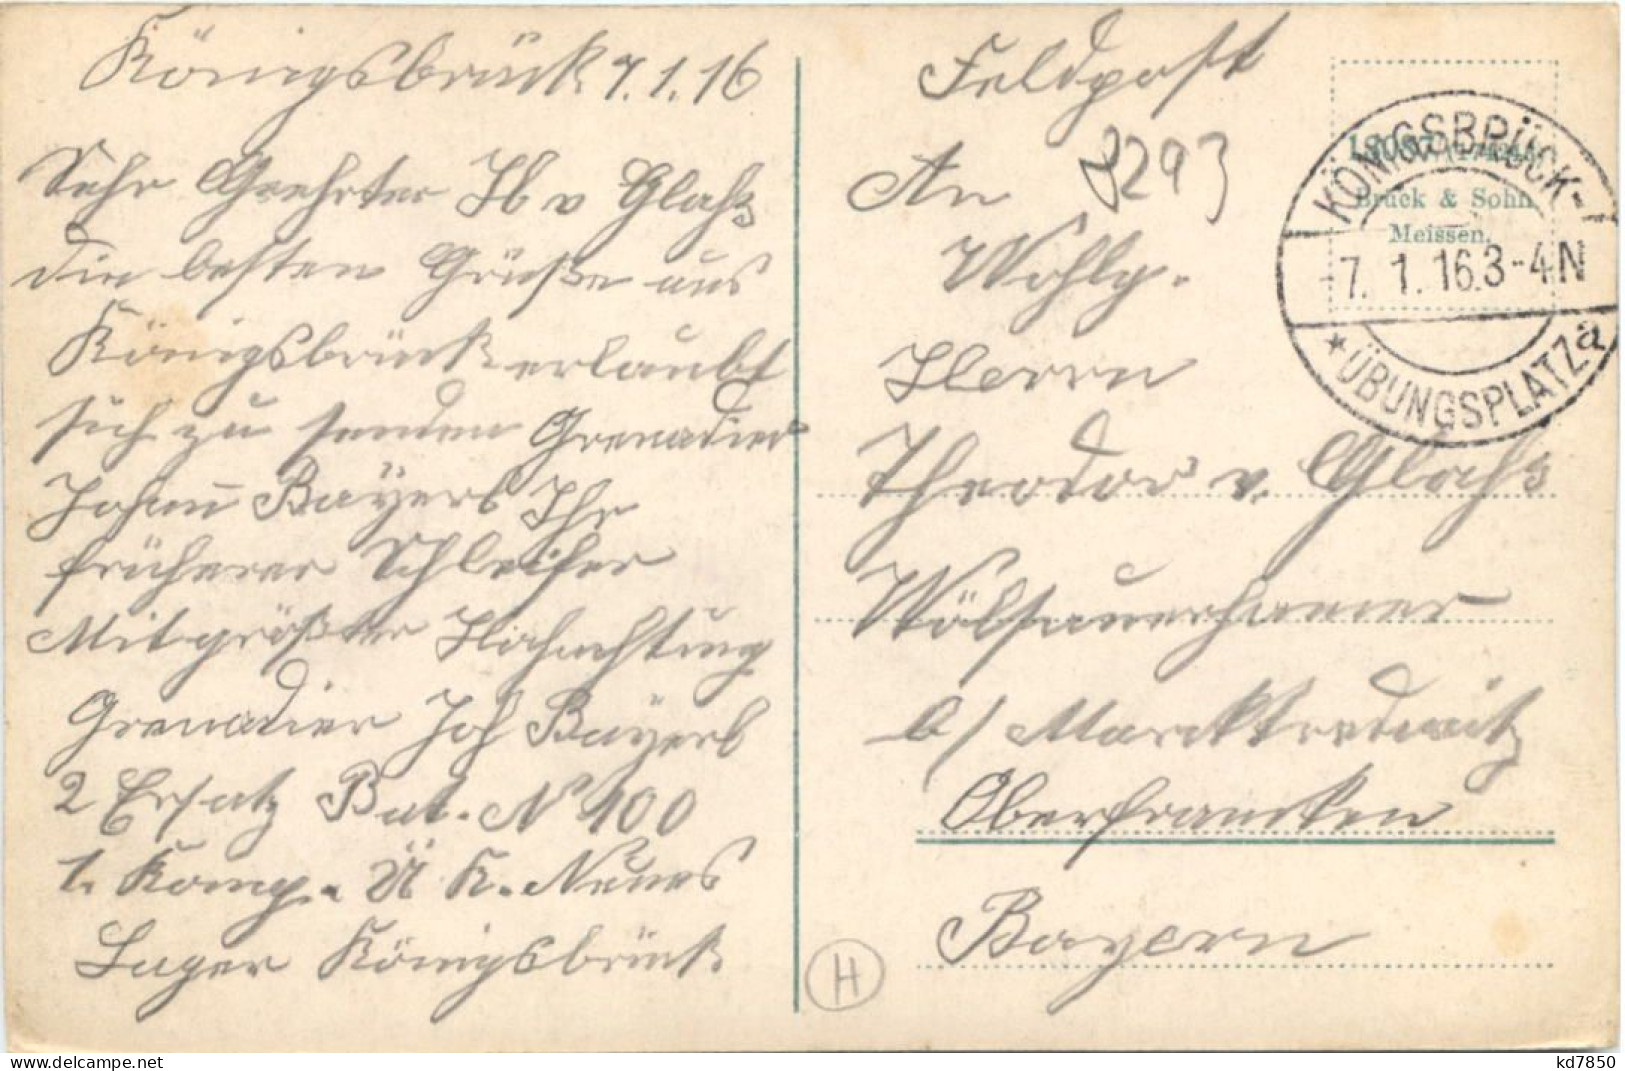 Königsbrück 7.1.16
Sehr Geehrter Hb v Glahs
die besten Grüße aus
Königsbrück erlaubt
sich zu senden Grenadier
Johan̄ Bayerl Ihr
früherer Schleifer
Mit größter Hochachtung
Grenadier Joh Bayerl
2 Ersatz Bat. N 100
1. Komp. Ü K. Neues
Lager Königsbrück
Feldpost
An 8293
Wohlg.
Herrn
Theodor v. Glahs
Wölsauerhammer
b/ Marcktredwitz
Oberfrancken
Bayern
H
Brück & Sohn
Meissen.
KÖNIGSBRÜCK-
-7. 1. 16.3-4N
* ÜBUNGSPLATZ a
delcampe.net
kd7850